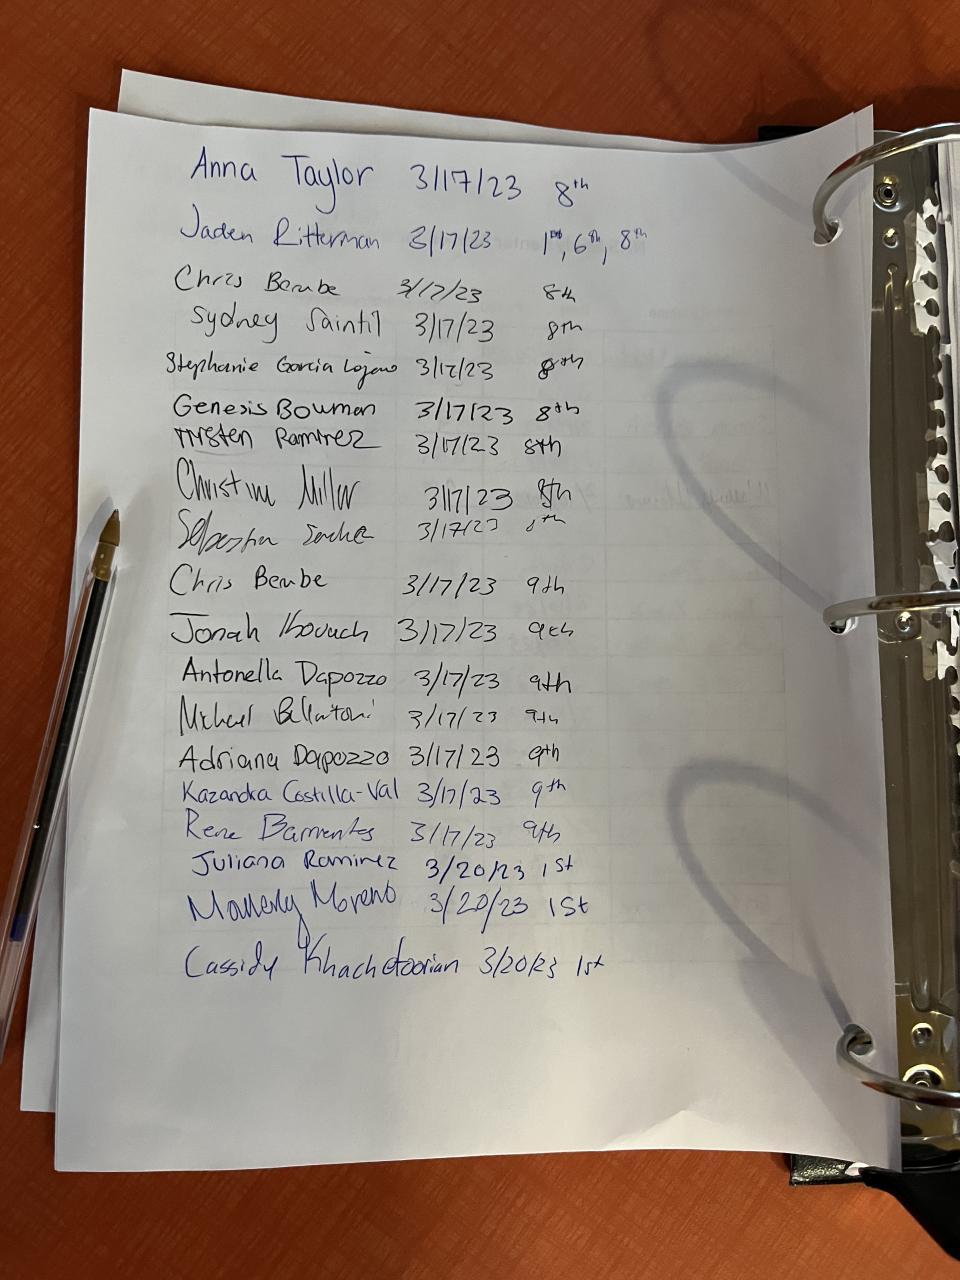 Anna Taylor 3/17/23 8th
Jaden Ritterman 3/17/23 1st, 6th, 8th
Chris Berube 3/17/23 8th
Sydney Saintil 3/17/23 8th
Stephanie Garcia Lojano 3/17/23 8th
Genesis Bowman 3/17/23 8th
Tristen Ramirez 3/17/23 8th
Christine Miller 3/17/23 8th
Sebastian 3/17/23 8th
Chris Berube 3/17/23 9th
Jonah 3/17/23 9th
Antonella Dapozzo 3/17/23 9th
Michael Bellantoni 3/17/23 9th
Adriana Dapozzo 3/17/23 9th
Kazandra Costilla-Val 3/17/23 9th
Rene Barrientos 3/17/23 9th
Juliana Ramirez 3/20/23 1st
Mallerly Moreno 3/20/23 1st
Cassidy Khachetoorian 3/20/23 1st